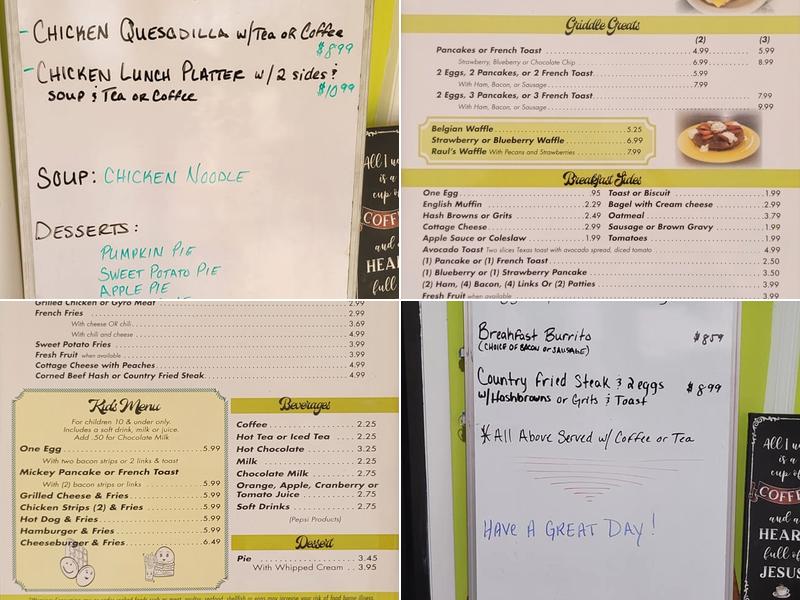 - CHICKEN QUESADILLA w/TEA OR COFFEE
$8.99
- CHICKEN LUNCH PLATTER w/ 2 sides &
SOUP & TEA OR COFFEE
$10.99
SOUP: CHICKEN NOODLE
DESSERTS:
PUMPKIN PIE
SWEET POTATO PIE
APPLE PIE
All I
is a
cup of
COFF
and a
HEAR
full of
Griddle Greats
(2) (3)
Pancakes or French Toast 4.99 5.99
Strawberry, Blueberry or Chocolate Chip 6.99 8.99
2 Eggs, 2 Pancakes, or 2 French Toast 5.99
With Ham, Bacon, or Sausage 7.99
2 Eggs, 3 Pancakes, or 3 French Toast 7.99
With Ham, Bacon, or Sausage 9.99
Belgian Waffle 5.25
Strawberry or Blueberry Waffle 6.99
Raul's Waffle With Pecans and Strawberries 7.99
Breakfast Sides
One Egg .95 Toast or Biscuit 1.99
English Muffin 2.29 Bagel with Cream cheese 2.99
Hash Browns or Grits 2.49 Oatmeal 3.79
Cottage Cheese 2.99 Sausage or Brown Gravy 1.99
Apple Sauce or Coleslaw 1.99 Tomatoes 1.99
Avocado Toast Two slices Texas toast with avocado spread, diced tomato 4.99
(1) Pancake or (1) French Toast 2.50
(1) Blueberry or (1) Strawberry Pancake 3.50
(2) Ham, (4) Bacon, (4) Links Or (2) Patties 3.99
Fresh Fruit when available 3.99
Grilled Chicken or Gyro Meat 2.99
French Fries 2.99
With cheese OR chili 3.69
With chili and cheese 4.99
Sweet Potato Fries 3.99
Fresh Fruit when available 3.99
Cottage Cheese with Peaches 4.99
Corned Beef Hash or Country Fried Steak 4.99
Kid's Menu
For children 10 & under only.
Includes a soft drink, milk or juice.
Add .50 for Chocolate Milk
One Egg 5.99
With two bacon strips or 2 links & toast
Mickey Pancake or French Toast
With (2) bacon strips or links 5.99
Grilled Cheese & Fries 5.99
Chicken Strips (2) & Fries 5.99
Hot Dog & Fries 5.99
Hamburger & Fries 5.99
Cheeseburger & Fries 6.49
Beverages
Coffee 2.25
Hot Tea or Iced Tea 2.25
Hot Chocolate 3.25
Milk 2.25
Chocolate Milk 2.75
Orange, Apple, Cranberry or
Tomato Juice 2.75
Soft Drinks 2.75
(Pepsi Products)
Dessert
Pie 3.45
With Whipped Cream 3.95
Breakfast Burrito $8.59
(CHOICE OF BACON OR SAUSAGE)
Country Fried Steak & 2 eggs $8.99
w/Hashbrowns or Grits & Toast
*All Above Served w/ Coffee or Tea
HAVE A GREAT DAY!
All I
is a
cup of
COFFE
and a
HEAR
full of
JESUS